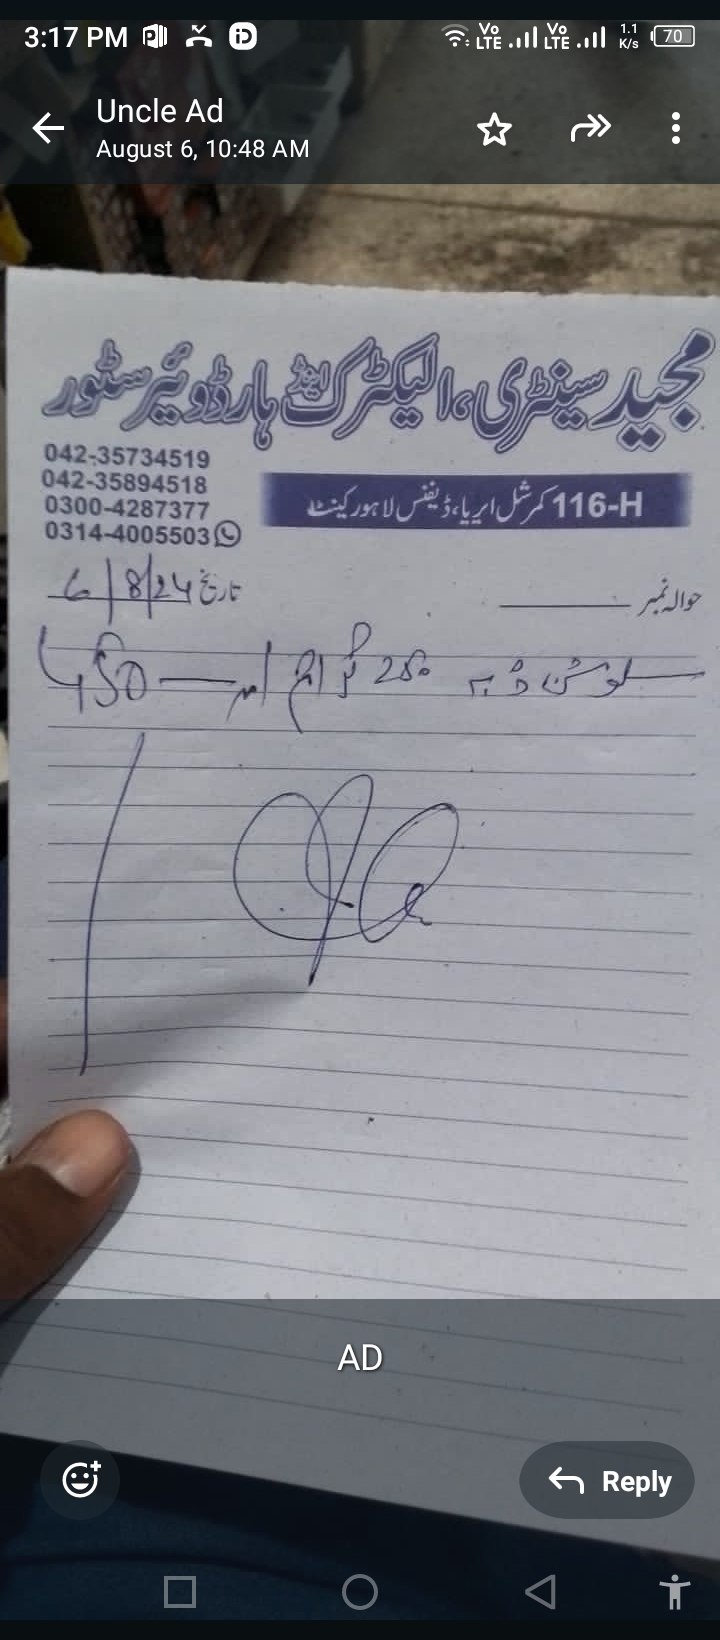 3:17 PM Vo LTE Vo LTE 1.1 K/s 70
Uncle Ad
August 6, 10:48 AM
مجید سینٹری، الیکٹرک اینڈ ہارڈویئر سٹور
042-35734519
042-35894518
0300-4287377
0314-4005503
116-H کمرشل ایریا، ڈیفنس لاہور کینٹ
حوالہ نمبر
تاریخ 6/8/24
سلوشن ڈبہ 250 گرام 450
AD
Reply